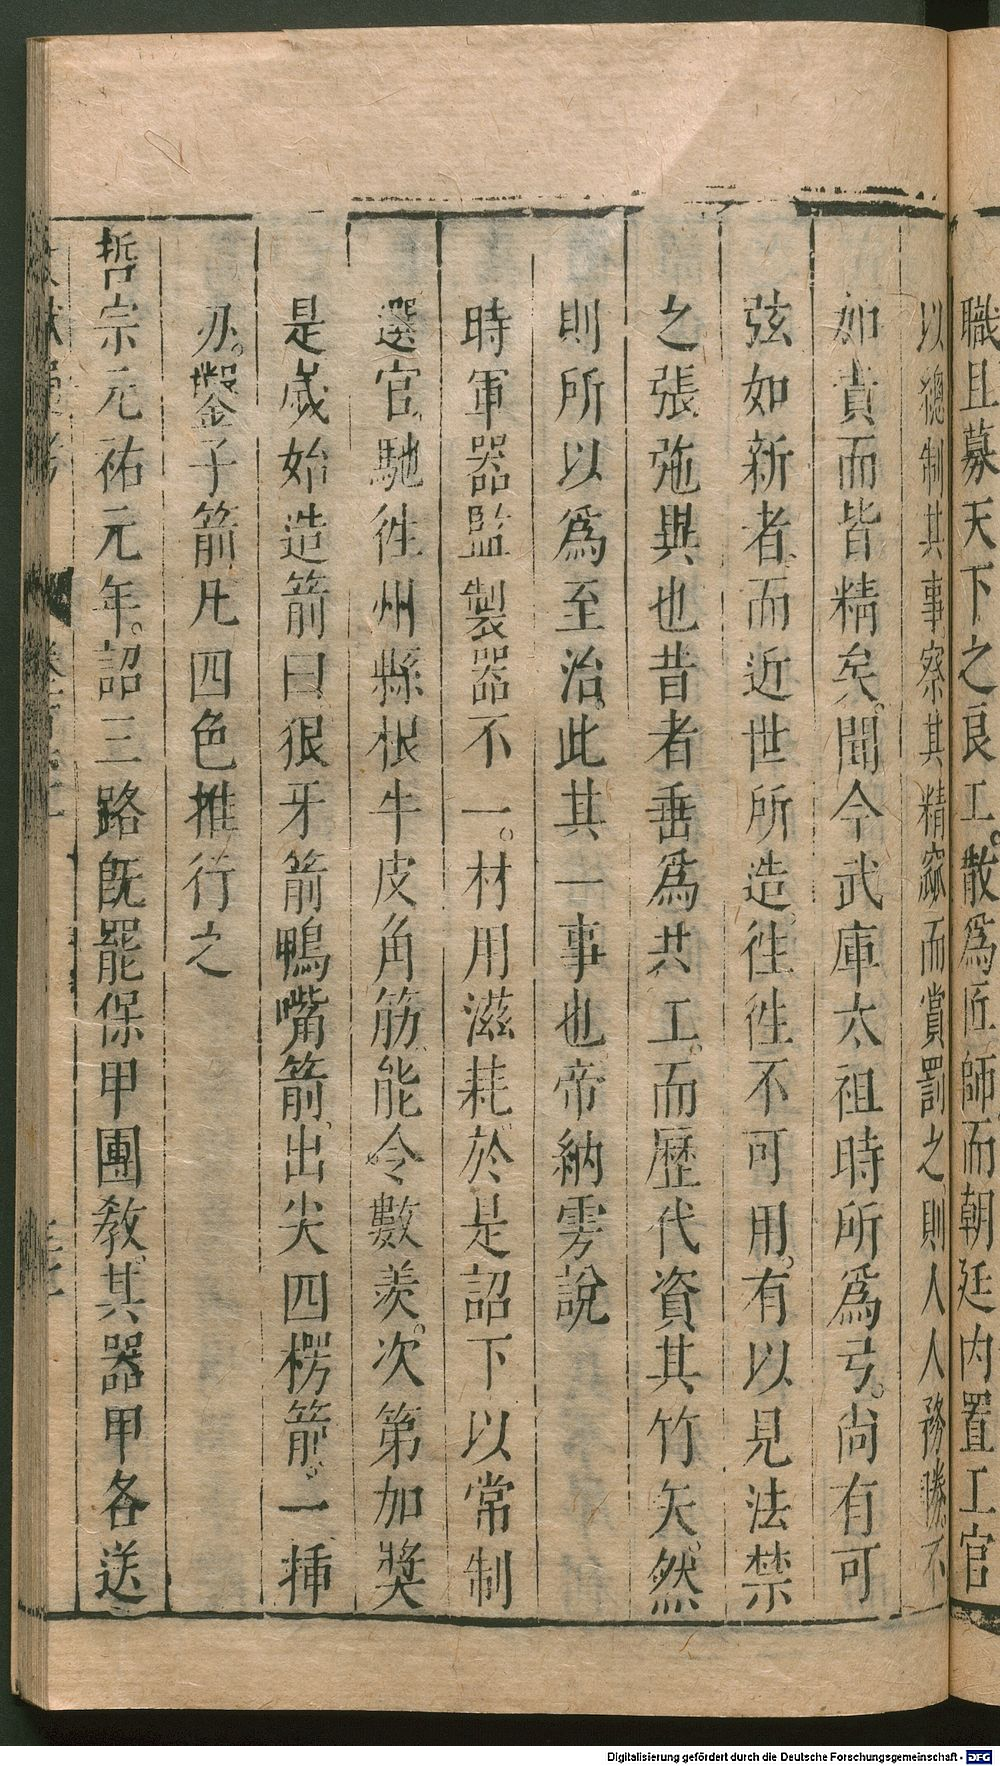 職且募天下之良工。散爲匠師而朝廷内置工官
以總制其事察其精窳而賞罰之則人人務勝。不
加責而皆精矣。聞今武庫太祖時所爲弓。尚有可
弦如新者。而近世所造。徃徃不可用。有以見法禁
之張弛與也昔者垂爲共工。而歷代資其竹矢。然
則所以爲至治。此其一事也。帝納雱說
時軍器監製器不一。材用滋耗於是詔下以常制
選官。馳徃州縣根牛皮角筋。能令數羨。次第加奬
是歲始造箭曰狠牙箭鴨嘴箭。出尖四楞箭。一揷
刃。鑿子箭凡四色推行之
哲宗元祐元年。詔三路旣罷保甲團教。其器甲各送
Digitalisierung gefördert durch die Deutsche Forschungsgemeinschaft - DFG